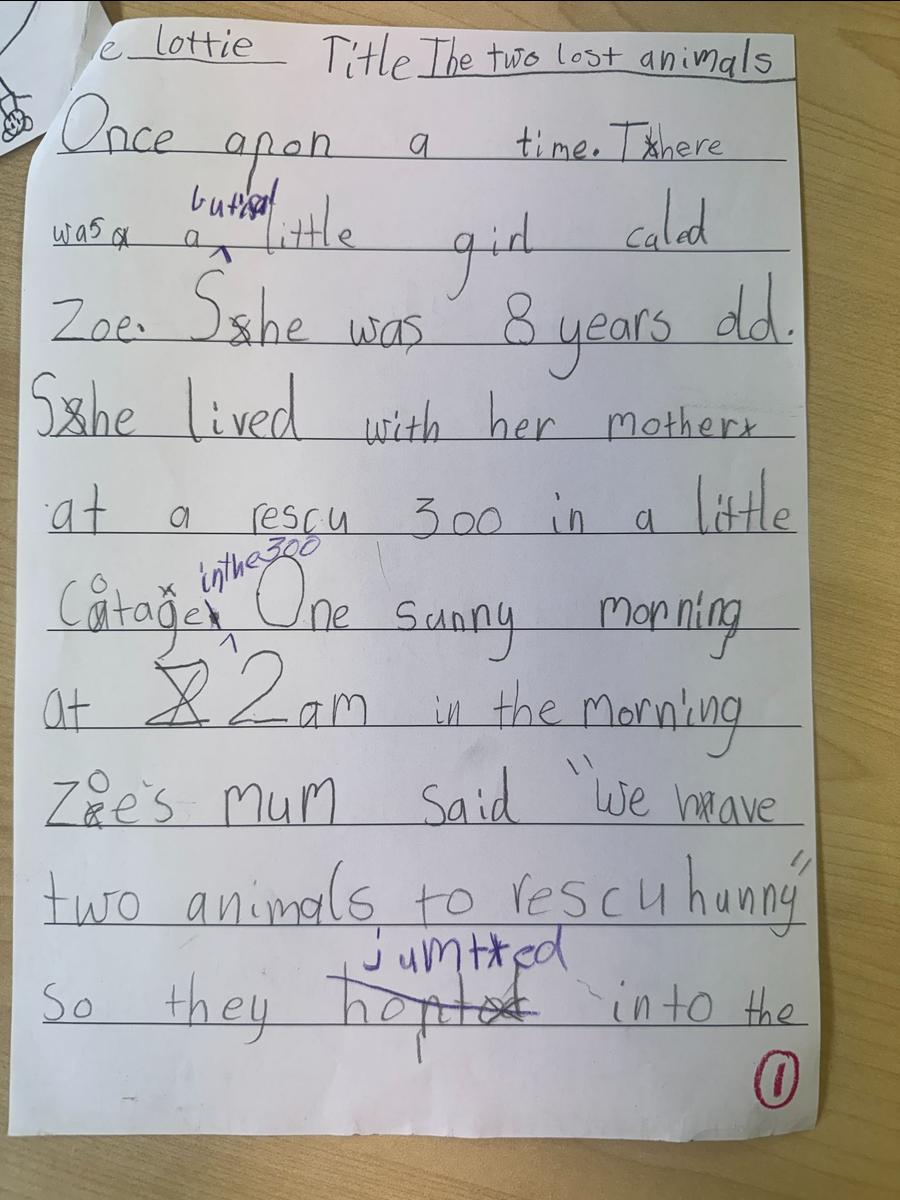 e lottie Title The two lost animals
Once apon a time. There
was a little girl caled
Zoe. She was 8 years old.
She lived with her mother
at a rescu zoo in a little
in the zoo
Cotage One sunny morning
at 2am in the morning
Zoe's mum said "We have
two animals to rescu hunny"
jumted
So they into the
1